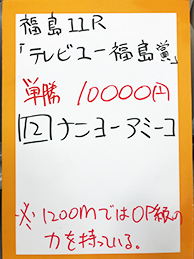 福島11R
「テレビユー福島賞」
単勝 10000円
12 ナンヨーアミーコ
※1200mではOP級の
力を持っている。